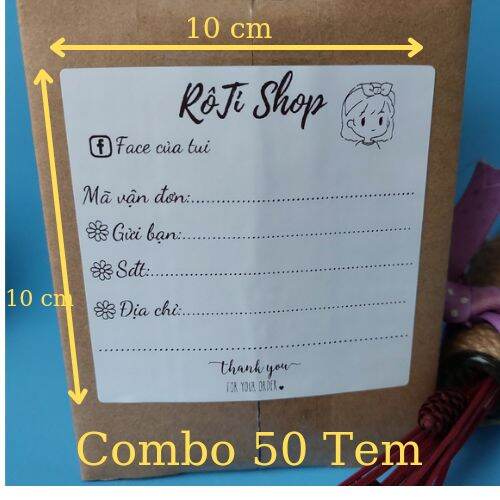 10 cm
RôTi Shop
Face của tui
Mã vận đơn:
Gửi bạn:
Sđt:
10 cm
Địa chỉ:
thank you
FOR YOUR ORDER
Combo 50 Tem